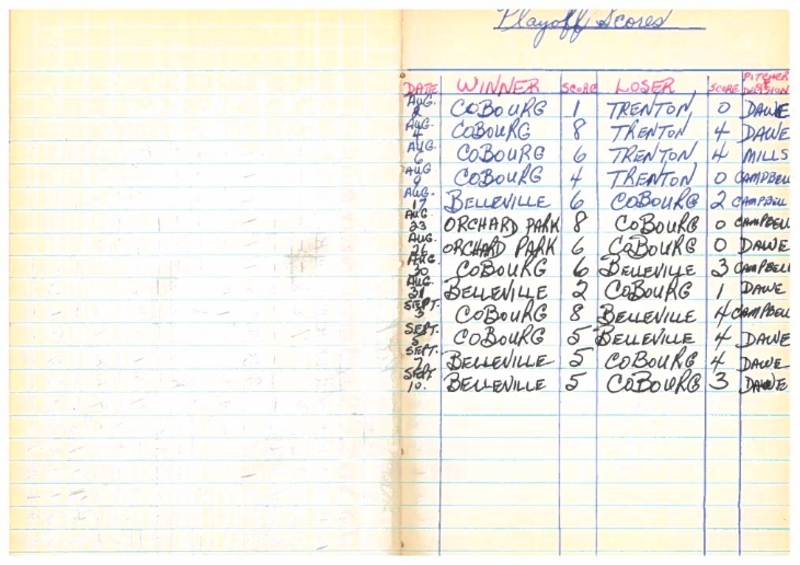 Playoff Scores
DATE WINNER SCORE LOSER SCORE PITCHER & DECISION
AUG. 2 COBOURG 1 TRENTON 0 DAWE
AUG. 4 COBOURG 8 TRENTON 4 DAWE
AUG 6 COBOURG 6 TRENTON 4 MILLS
AUG 9 COBOURG 4 TRENTON 0 CAMPBELL
AUG. 17 BELLEVILLE 6 COBOURG 2 CAMPBELL
AUG. 23 ORCHARD PARK 8 COBOURG 0 CAMPBELL
AUG. 26 ORCHARD PARK 6 COBOURG 0 DAWE
AUG. 30 COBOURG 6 BELLEVILLE 3 CAMPBELL
AUG. 31 BELLEVILLE 2 COBOURG 1 DAWE
SEPT. 3 COBOURG 8 BELLEVILLE 4 CAMPBELL
SEPT. 5 COBOURG 5 BELLEVILLE 4 DAWE
SEPT. 7 BELLEVILLE 5 COBOURG 4 DAWE
SEPT 10. BELLEVILLE 5 COBOURG 3 DAWE